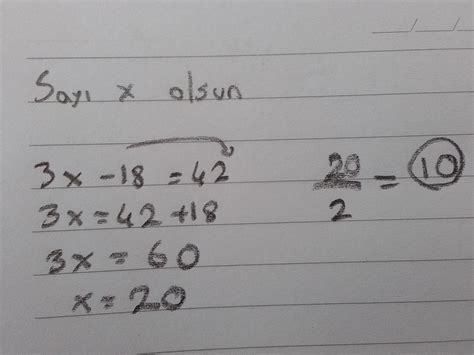 Sayı x olsun
3x - 18 = 42
3x = 42 + 18
3x = 60
x = 20
20/2 = 10